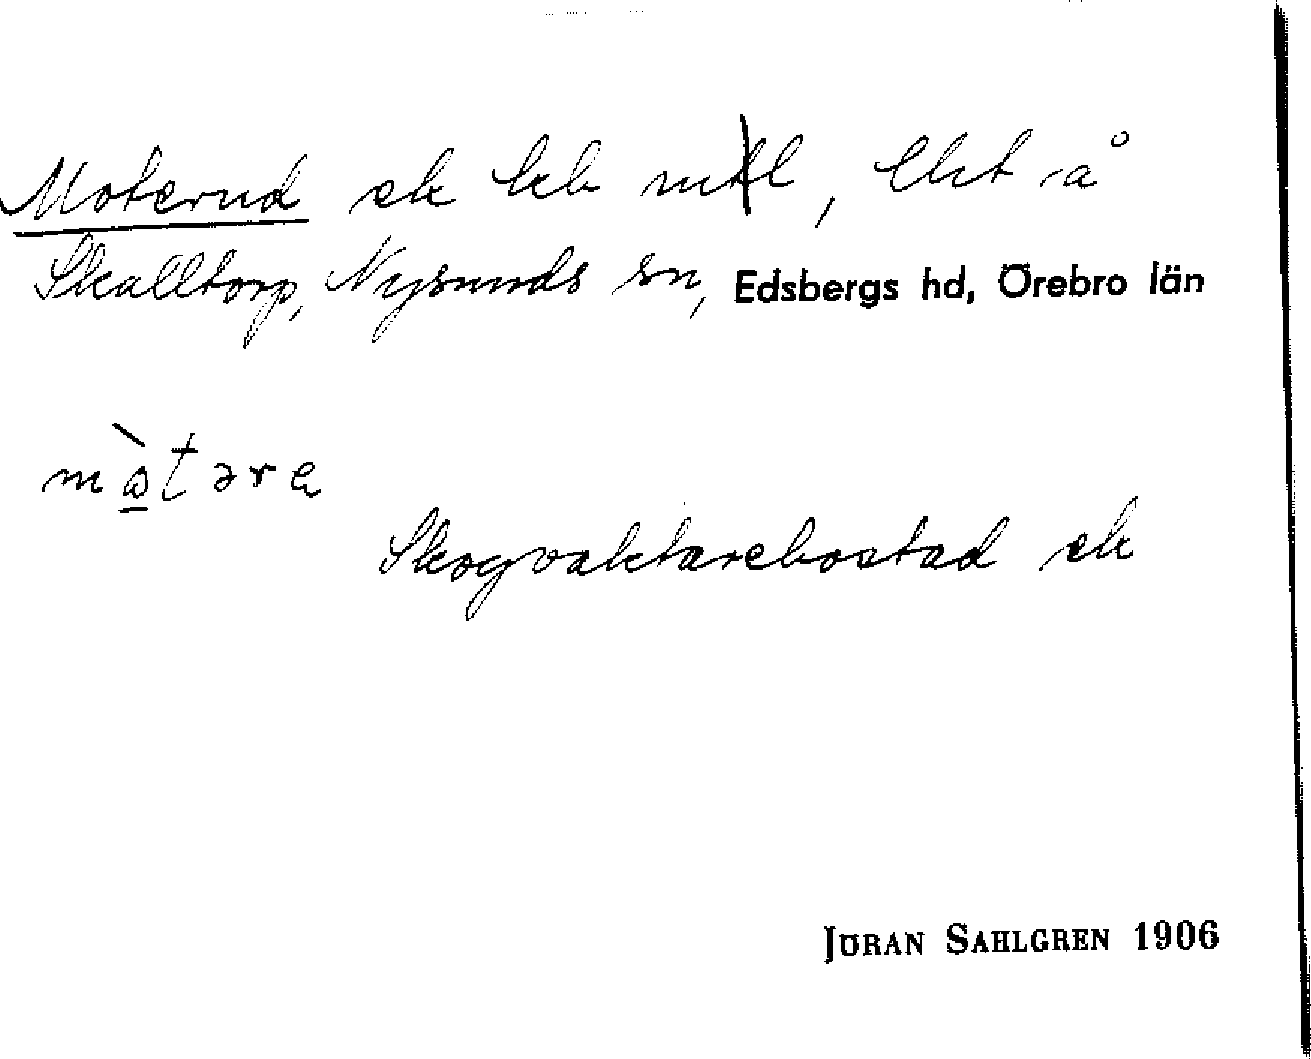 Moterud ek kb mtl, lht å
Skalltorp, Nysunds sn, Edsbergs hd, Örebro län
Skogvaktarebostad ek
JÖRAN SAHLGREN 1906